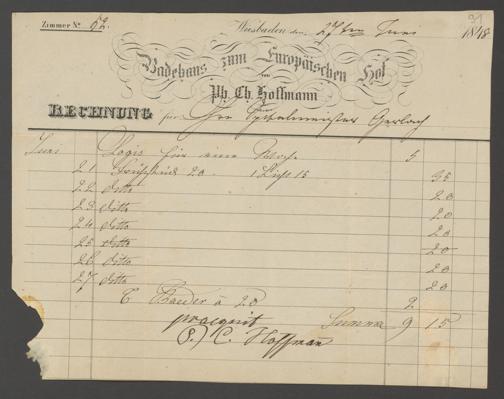 91
Zimmer No 52.
Wiesbaden den 27ten Juni 1848
Badehaus zum Europäischen Hof
von
Ph. Ch. Hoffmann
RECHNUNG für Hrn Spitalmeister Gerlach
Juni Logis für eine Woche 5
21 Frühstück 20. 1 Licht 15 35
22 ditto 20
23 ditto 20
24 ditto 20
25 ditto 20
26 ditto 20
27 ditto 20
6 Baeder à 20 2
Summa 9 15
P. C. Hoffman